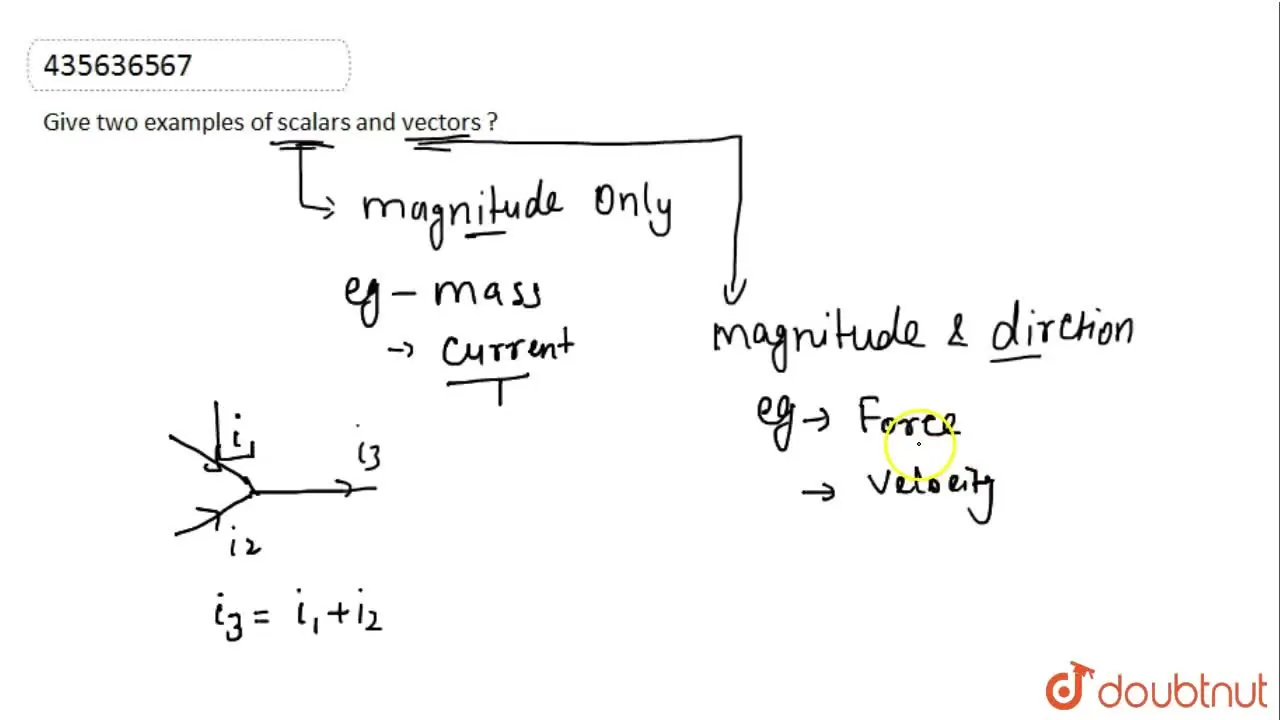 435636567
Give two examples of scalars and vectors ?
magnitude Only
eg - mass
→ Current
magnitude & dirction
eg → Force
→ Velocity
i
i3
i2
i3 = i1 + i2
doubtnut